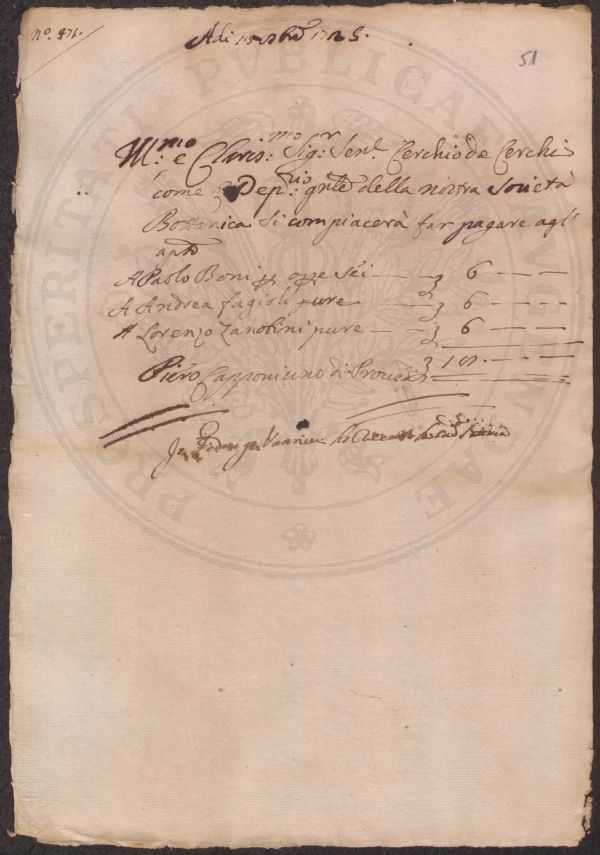 N.° 471.
51
Adi 15 1725.
Ill.mo e Claris.mo Sig.r Sen.e Cerchio de Cerchi
come Dep.rio gnle della nostra Società
Bottanica si compiacerà far pagare agl'
apto
A Paolo Boni sei 6
A Andrea fagioli pure 6
A Lorenzo Zanobini pure 6
18
Piero Capponi uno di Proved.
Io
PROSPERITATI · PUBLICAE · AUGENDAE